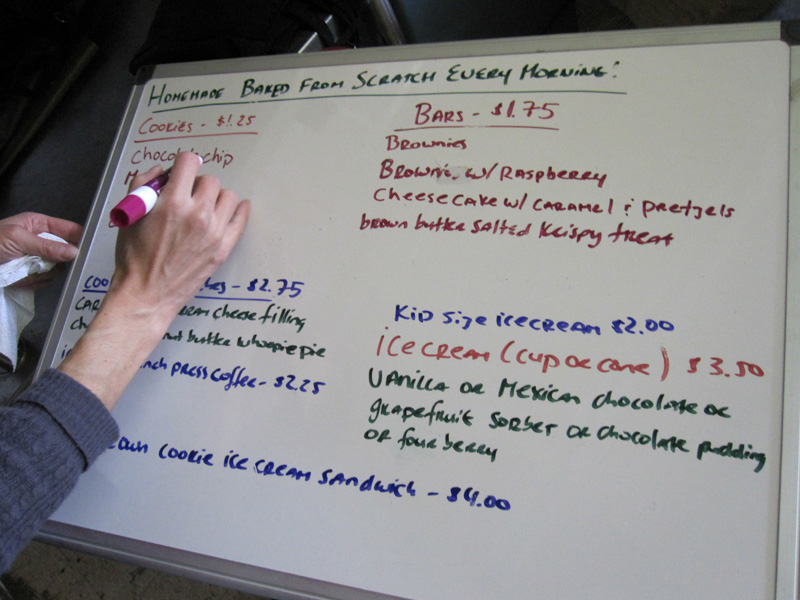 Homemade Baked From Scratch Every Morning!
Cookies - $1.25
Chocolate chip
Bars - $1.75
Brownies
Brownie w/ Raspberry
Cheesecake w/ caramel & pretzels
brown butter salted krispy treat
- $2.75
cheese filling
butter whoopie pie
press coffee - $2.25
Kid size ice cream $2.00
Ice cream (cup or cone) $3.50
Vanilla or Mexican chocolate or
grapefruit sorbet or chocolate pudding
or four berry
own cookie ice cream sandwich - $4.00